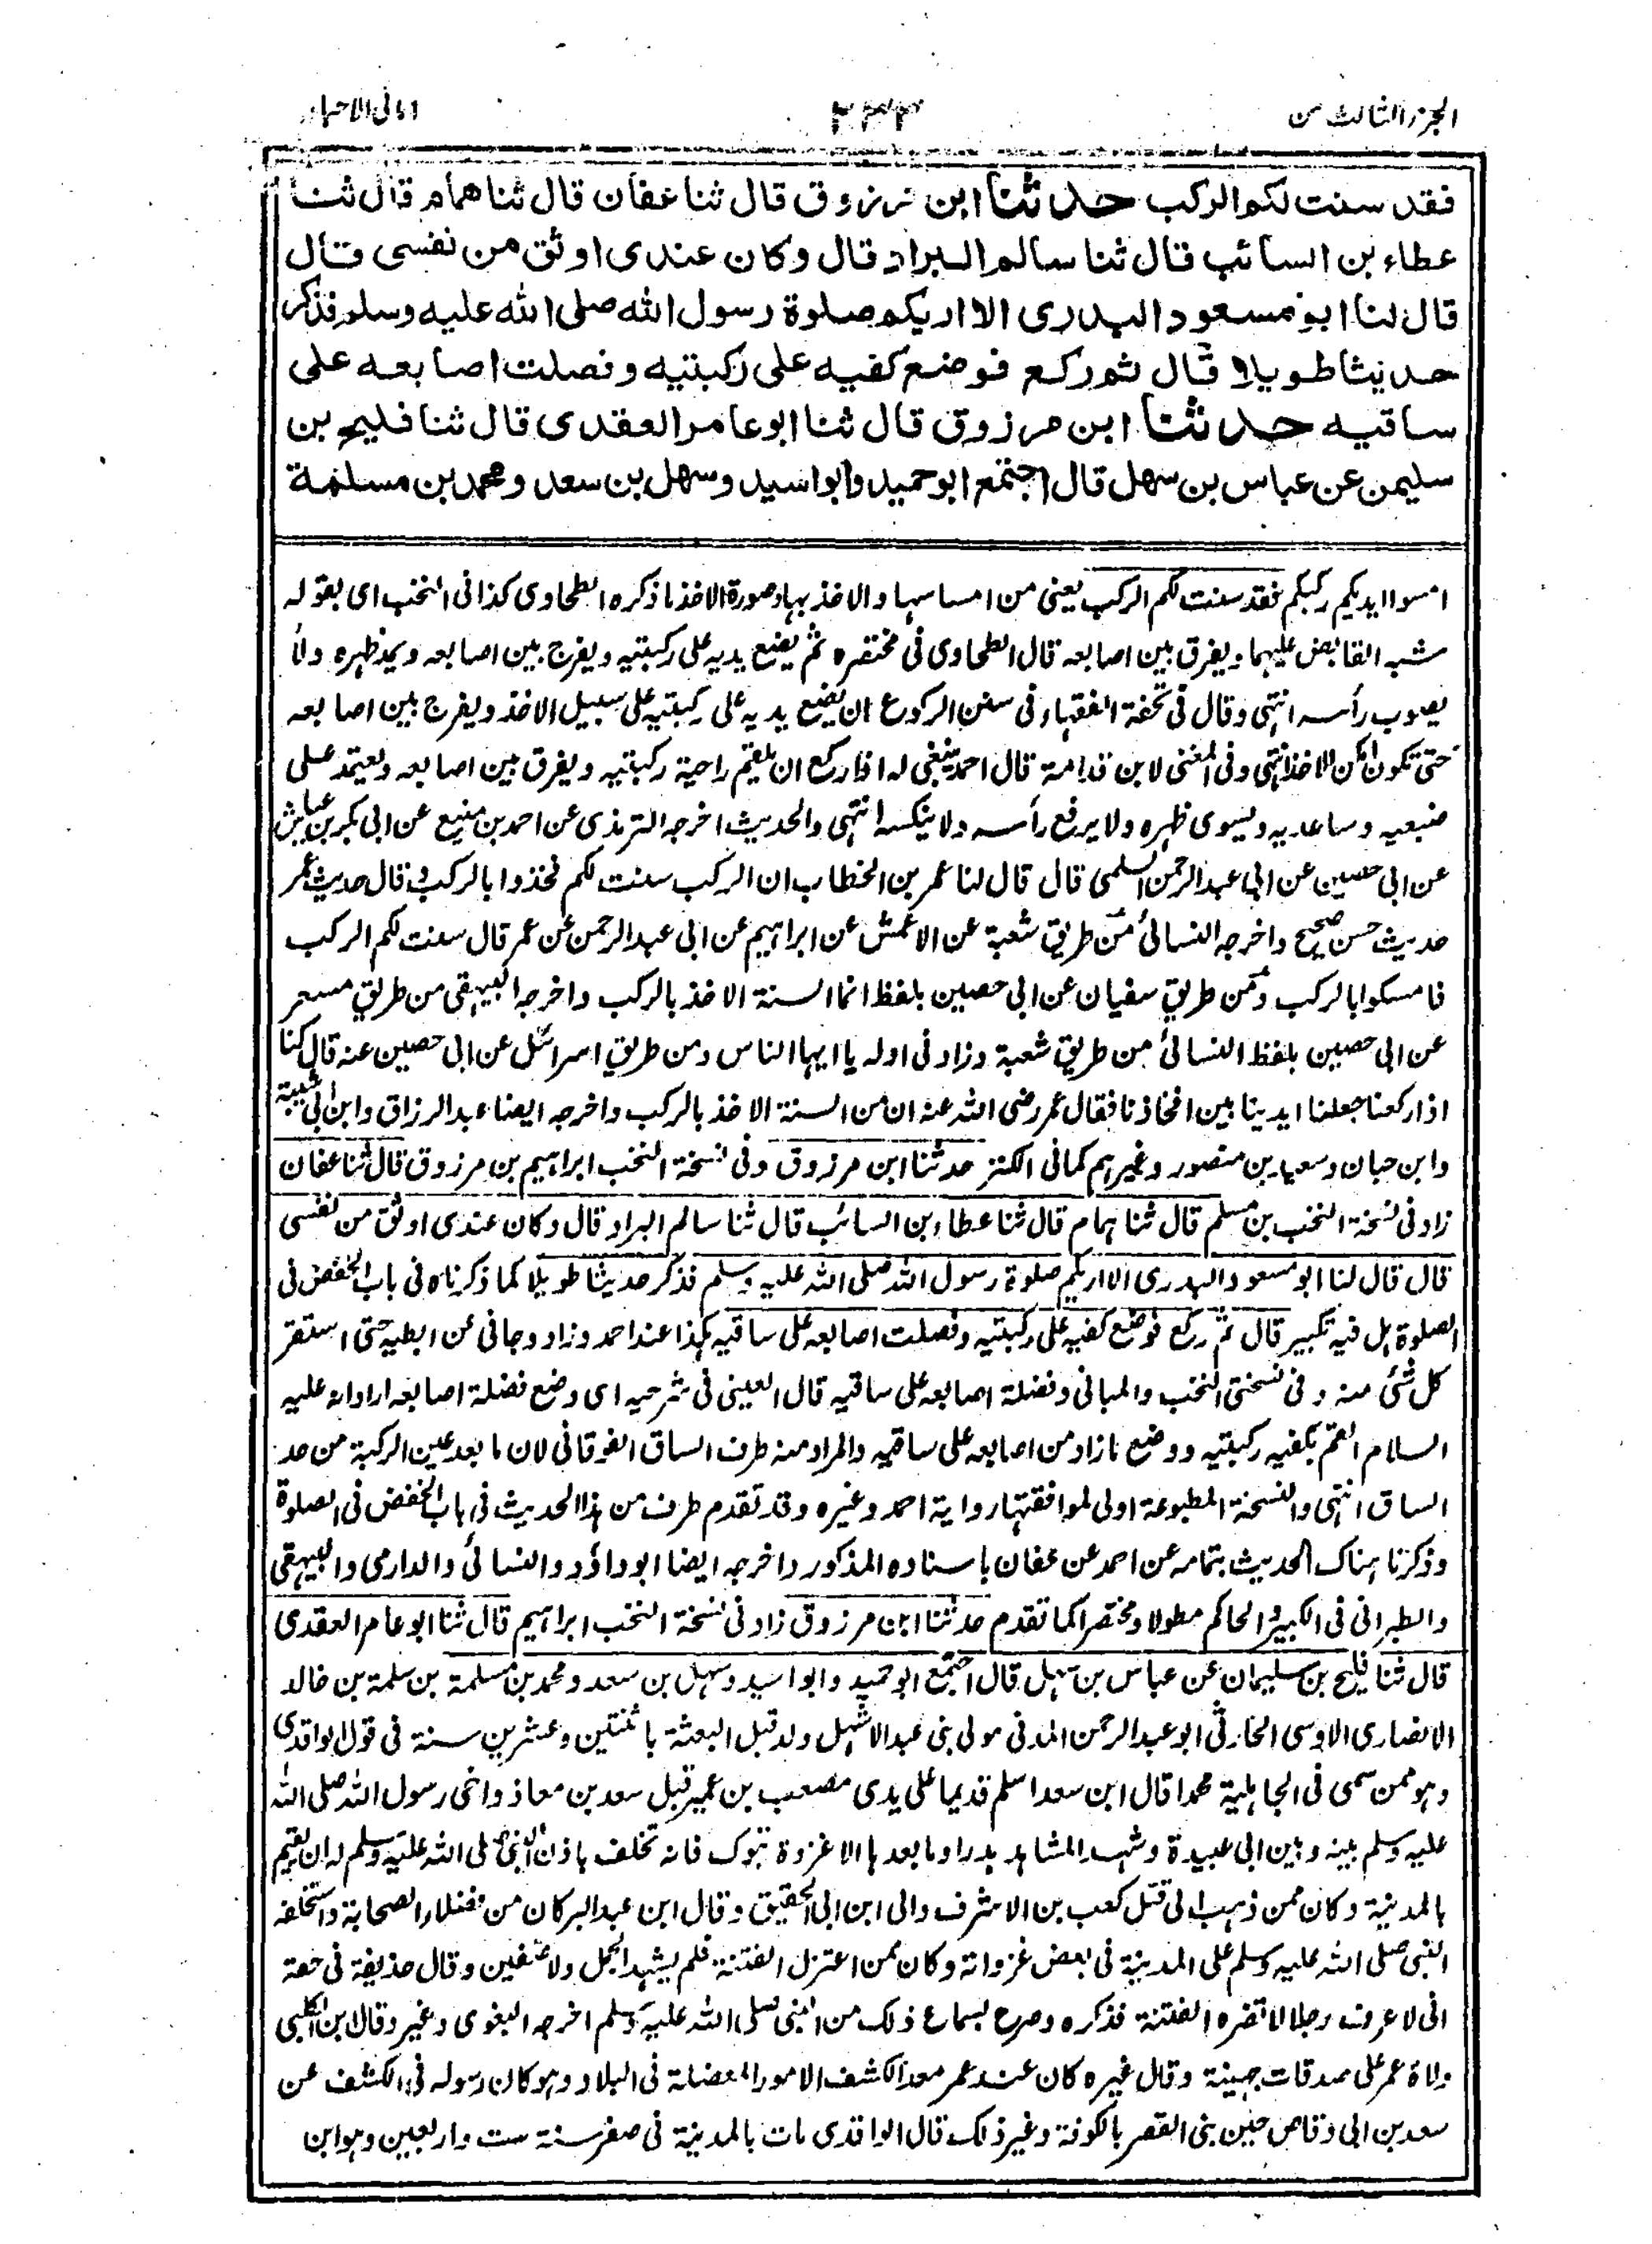 الجزء الثالث من
٢٣٣
امانی الاحبار
فقد سنت لكم الركب حدثنا ابن مرزوق قال ثنا عفان قال ثنا همام قال ثنا
عطاء بن السائب قال ثنا سالم البراد قال وكان عندی اوثق من نفسی قال
قال لنا ابو مسعود البدری الا اریكم صلوة رسول الله صلی الله علیه وسلم فذكر
حدیثا طویلا قال ثم ركع فوضع كفیه علی ركبتیه وفصلت اصابعه علی
ساقیه حدثنا ابن مرزوق قال ثنا ابو عامر العقدی قال ثنا فلیح بن
سلیمن عن عباس بن سهل قال اجتمع ابو حمید وابو اسید وسهل بن سعد ومحمد بن مسلمة
امسوا ایدیكم ركبكم فقد سنت لكم الركب یعنی من امساسها والاخذ بها وصورة الاخذ ما ذكره الطحاوی كذا فی النخب ای بقوله
شبه القابض علیهما ویفرق بین اصابعه قال الطحاوی فی مختصره ثم یضع یدیه علی ركبتیه ویفرج بین اصابعه ویمد ظهره ولا
یصوب رأسه انتهی وقال فی تحفة الفقهاء فی سنن الركوع ان یضع یدیه علی ركبتیه علی سبیل الاخذ ویفرج بین اصابعه
حتی تكون امكن للاخذ انتهی وفی المغنی لابن قدامة قال احمد ینبغی له اذا ركع ان یلقم راحتیه ركبتیه ویفرق بین اصابعه ویعتمد علی
ضبعیه وساعدیه ویسوی ظهره ولا یرفع رأسه ولا ینكسه انتهی والحدیث اخرجه الترمذی عن احمد بن منیع عن ابی بكر بن عیاش
عن ابی حصین عن ابی عبد الرحمن السلمی قال قال لنا عمر بن الخطاب ان الركب سنت لكم فخذوا بالركب وقال حدیث عمر
حدیث حسن صحیح واخرجه النسائی من طریق شعبة عن الاعمش عن ابراهیم عن ابی عبد الرحمن عن عمر قال سنت لكم الركب
فامسكوا بالركب ومن طریق سفیان عن ابی حصین بلفظ انما السنة الاخذ بالركب واخرجه البیهقی من طریق مسعر
عن ابی حصین بلفظ النسائی من طریق شعبة وزاد فی اوله یا ایها الناس ومن طریق اسرائیل عن ابی حصین عنه قال كنا
اذا ركعنا جعلنا ایدینا بین افخاذنا فقال عمر رضی الله عنه ان من السنة الاخذ بالركب واخرجه ایضا عبد الرزاق وابن ابی شیبة
وابن حبان وسعید بن منصور وغیرهم كما فی الكنز حدثنا ابن مرزوق وفی نسخة النخب ابراهیم بن مرزوق قال ثنا عفان
زاد فی نسخة النخب بن مسلم قال ثنا همام قال ثنا عطاء بن السائب قال ثنا سالم البراد قال وكان عندی اوثق من نفسی
قال قال لنا ابو مسعود البدری الا اریكم صلوة رسول الله صلی الله علیه وسلم فذكر حدیثا طویلا كما ذكرناه فی باب الخفض فی
الصلوة هل فیه تكبیر قال ثم ركع فوضع كفیه علی ركبتیه وفصلت اصابعه علی ساقیه هكذا عند احمد وزاد وجافی عن ابطیه حتی استقر
كل شئ منه وفی نسختی النخب والمبانی وفضلة اصابعه علی ساقیه قال العینی فی شرحیه ای وضع فضلة اصابعه اراد انه علیه
السلام القم بكفیه ركبتیه ووضع ما زاد من اصابعه علی ساقیه والمراد منه طرف الساق الفوقانی لان ما بعد عین الركبة من حد
الساق انتهی والنسخة المطبوعة اولی لموافقتها روایة احمد وغیره وقد تقدم طرف من هذا الحدیث فی باب الخفض فی الصلوة
وذكرنا هناك الحدیث بتمامه عن احمد عن عفان باسناده المذكور واخرجه ایضا ابو داؤد والنسائی والدارمی والبیهقی
والطبرانی فی الكبیر والحاكم مطولا ومختصرا كما تقدم حدثنا ابن مرزوق زاد فی نسخة النخب ابراهیم قال ثنا ابو عامر العقدی
قال ثنا فلیح بن سلیمان عن عباس بن سهل قال اجتمع ابو حمید وابو اسید وسهل بن سعد ومحمد بن مسلمة بن سلمة بن خالد
الانصاری الاوسی الحارثی ابو عبد الرحمن المدنی مولی بنی عبد الاشهل ولد قبل البعثة باثنتین وعشرین سنة فی قول الواقدی
وهو ممن سمی فی الجاهلیة محمدا قال ابن سعد اسلم قدیما علی یدی مصعب بن عمیر قبل سعد بن معاذ واخی رسول الله صلی الله
علیه وسلم بینه وبین ابی عبیدة وشهد المشاهد بدرا وما بعدها الا غزوة تبوك فانه تخلف باذن النبی صلی الله علیه وسلم له ان یقیم
بالمدینة وكان ممن ذهب الی قتل كعب بن الاشرف والی ابن ابی الحقیق وقال ابن عبد البر كان من فضلاء الصحابة واستخلفه
النبی صلی الله علیه وسلم علی المدینة فی بعض غزواته وكان ممن اعتزل الفتنة فلم یشهد الجمل ولا صفین وقال حذیفة فی حقه
انی لاعرف رجلا لا تضره الفتنة فذكره وصرح بسماع ذلك من النبی صلی الله علیه وسلم اخرجه البغوی وغیره وقال ابن الكلبی
ولاه عمر علی صدقات جهینة وقال غیره كان عند عمر معدا لكشف الامور المعضلة فی البلاد وهو كان رسوله فی الكشف عن
سعد بن ابی وقاص حین بنی القصر بالكوفة وغیر ذلك قال الواقدی مات بالمدینة فی صفر سنة ست واربعین وهو ابن